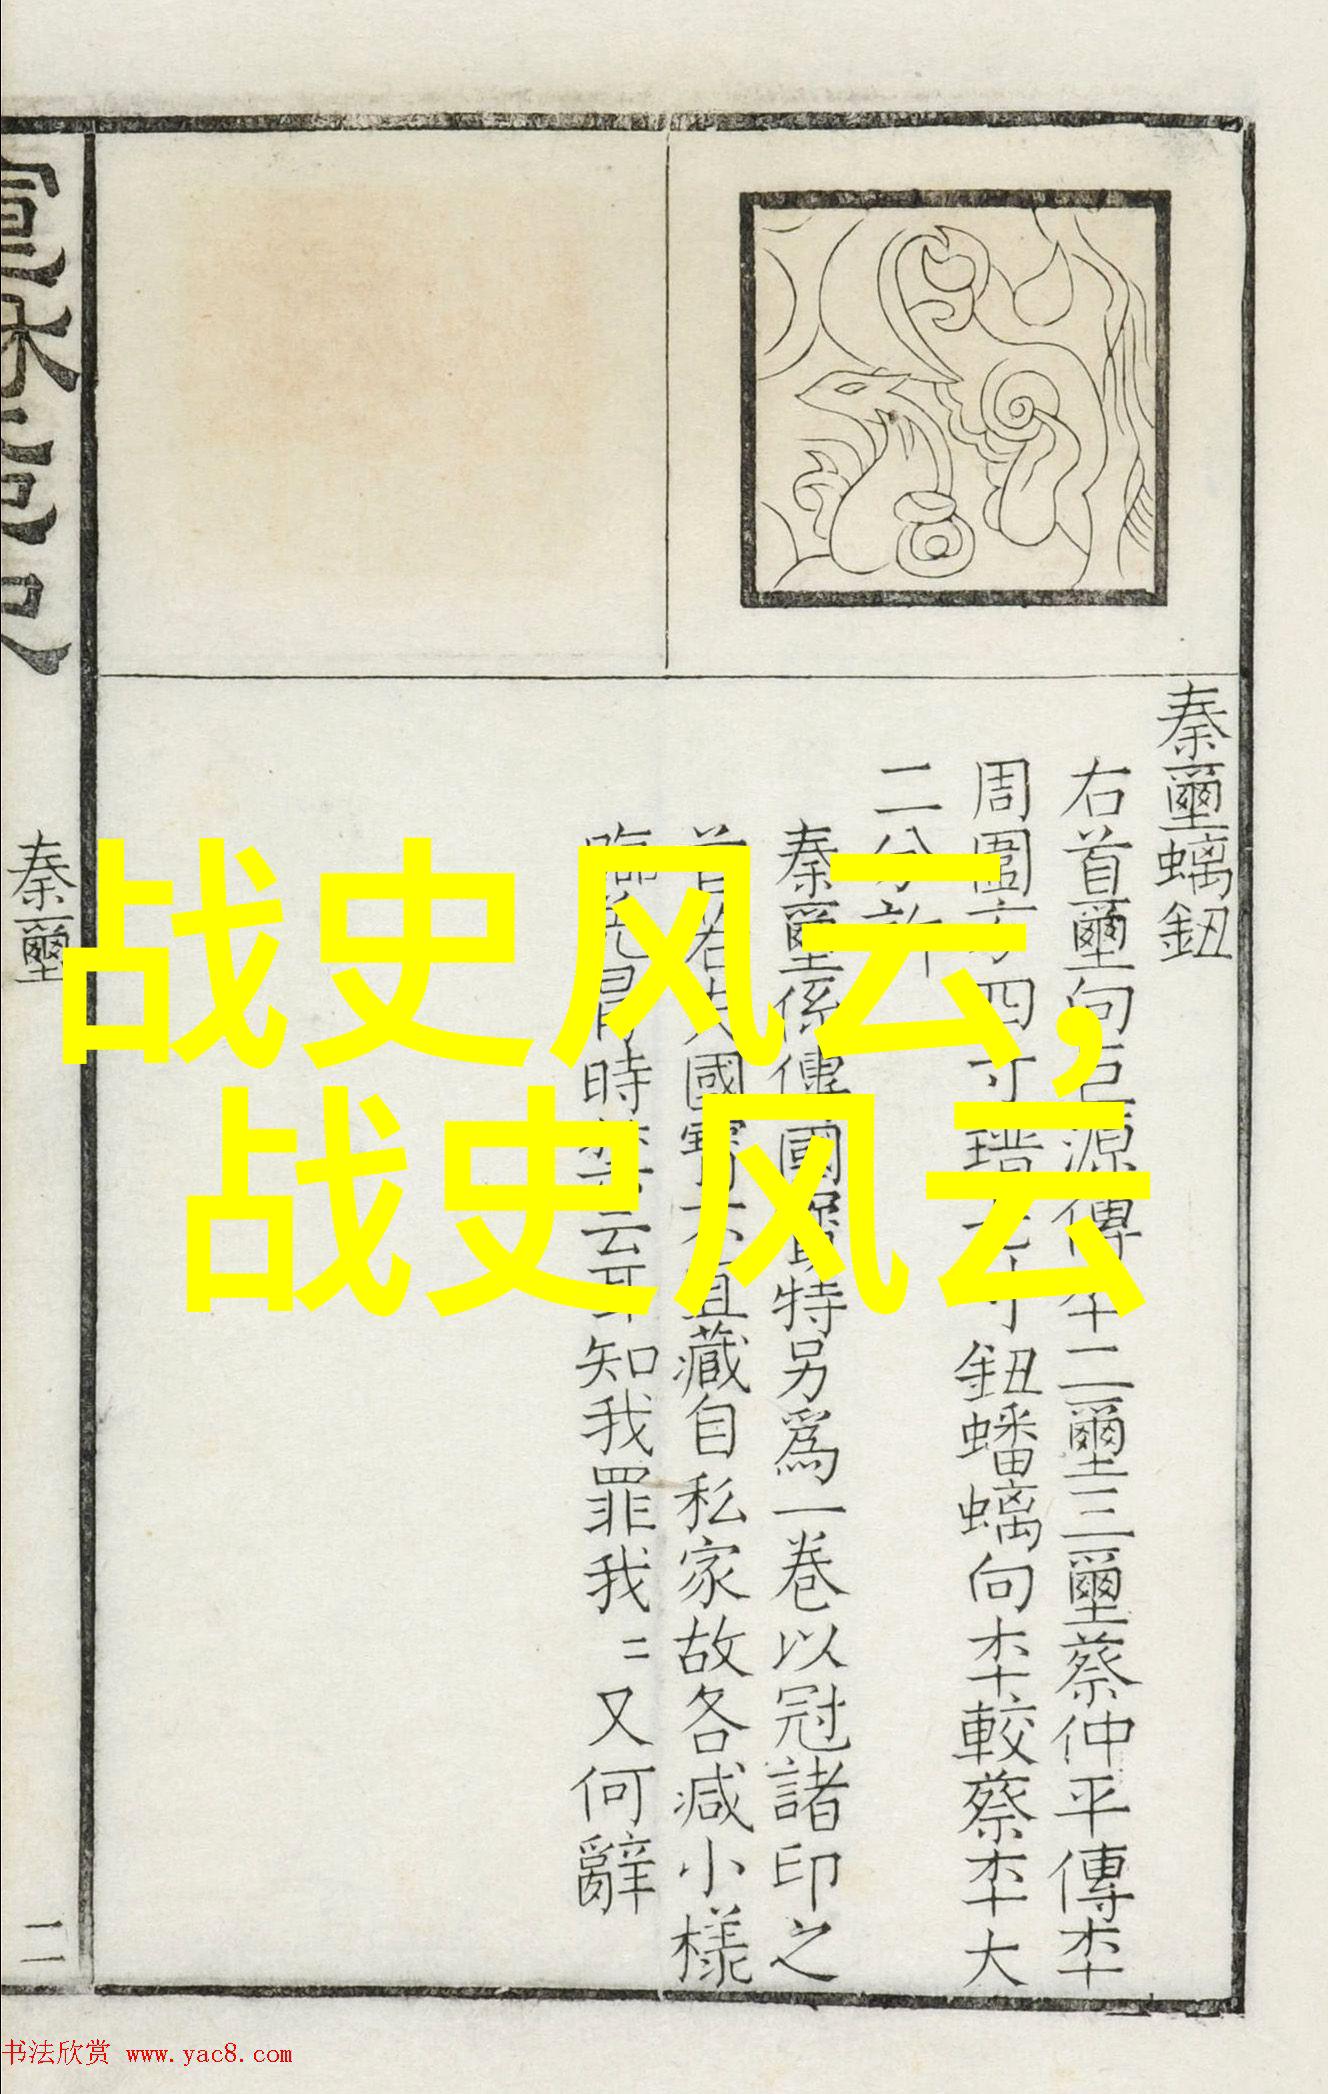 战史风云,
战史风云
秦璽螭鈕
右首璽向巨源傳本二璽三璽蔡仲平傳本
周圍方四寸 鈕蟠螭向本較蔡本大
二分許
秦璽係傳國 特另爲一卷以冠諸印之
首 國寶不宜藏自私家故各减小樣
時 知我罪我〻又何辭
秦璽
二
书法欣赏 www.yac8.com